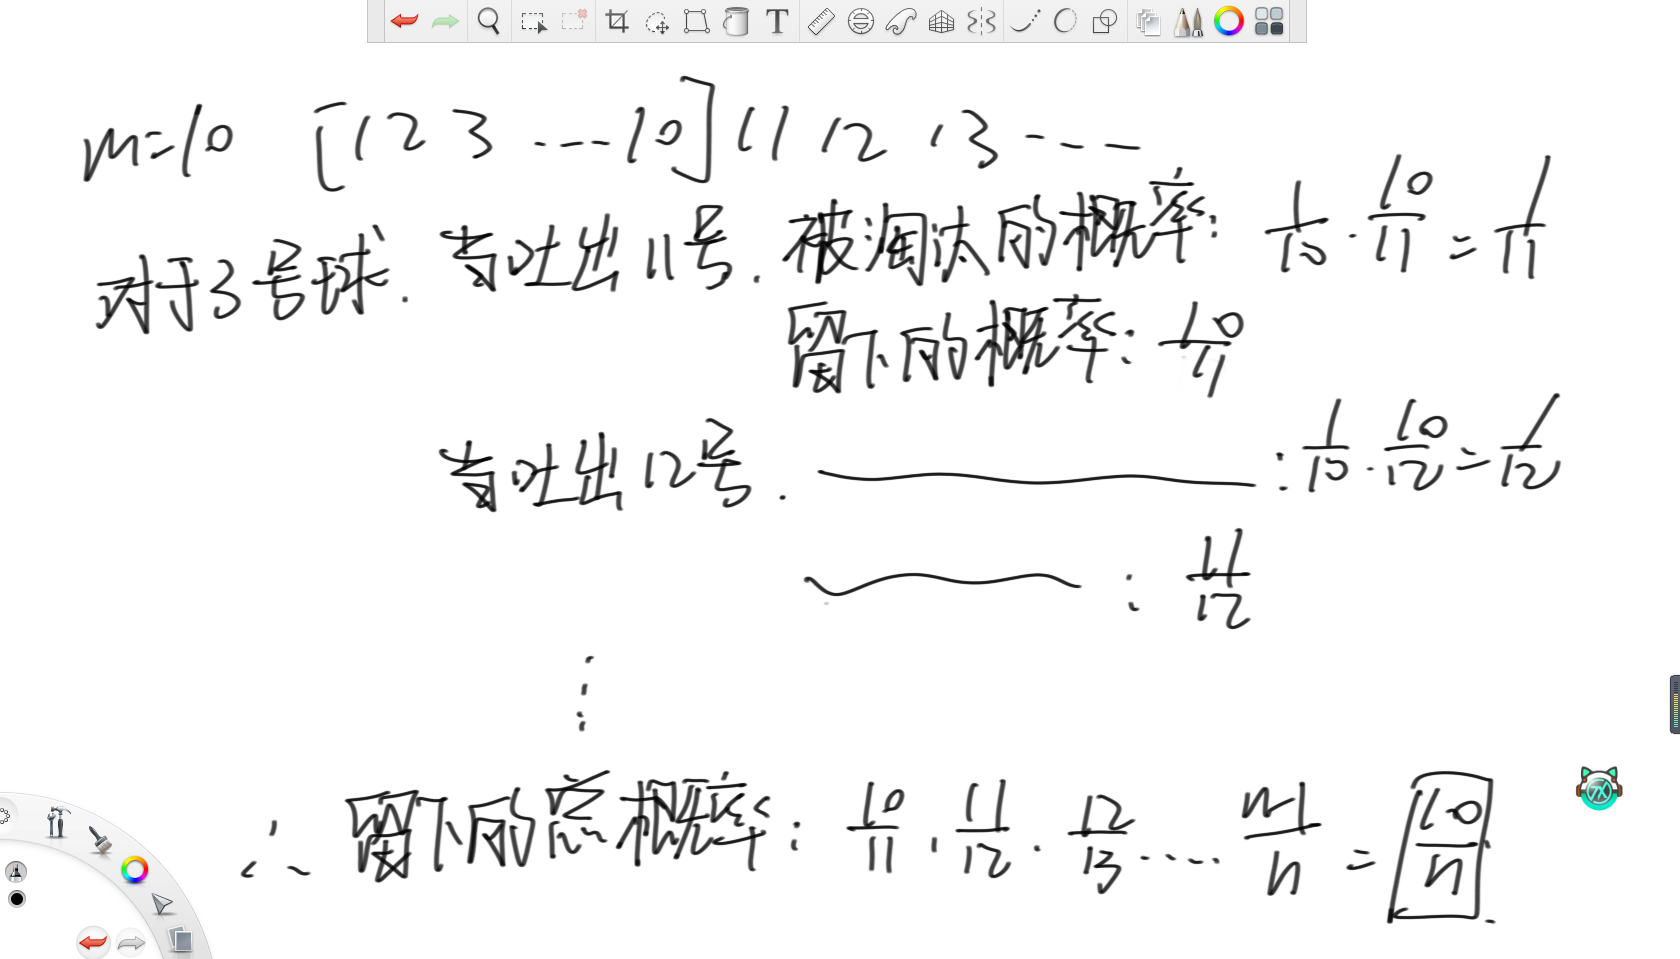 m=10 [1 2 3 ...10] 11 12 13 ...
对于3号球. 当吐出11号. 被淘汰的概率: 1/10 · 10/11 = 1/11
留下的概率: 10/11
当吐出12号. : 1/10 · 10/12 = 1/12
: 11/12
⋮
∴ 留下的总概率: 10/11 · 11/12 · 12/13 ···· n-1/n = 10/n